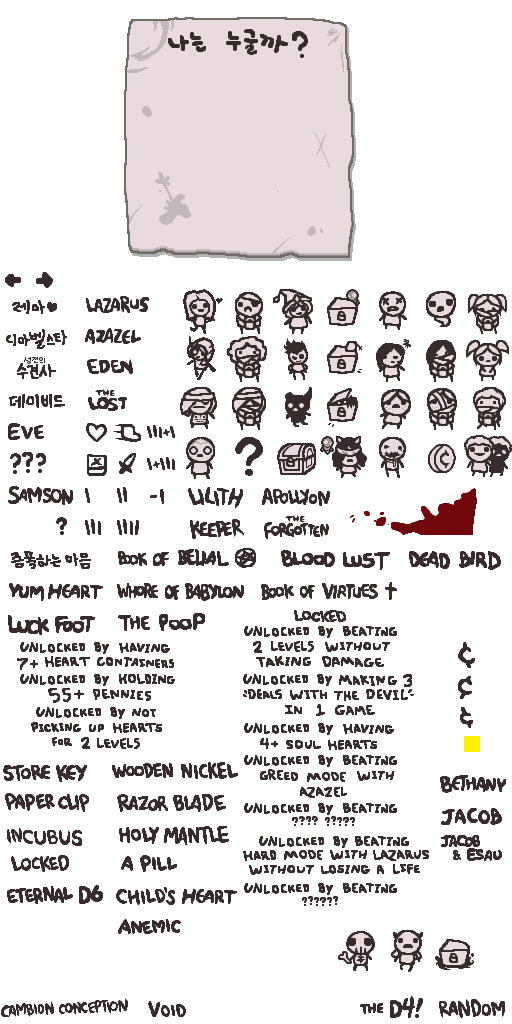 나는 누굴까?
레아♥ LAZARUS
디아벨스타 AZAZEL
성전의
수견사 EDEN
데이비드 THE LOST
EVE |||+|
??? |+|||
SAMSON | || -| LILITH APOLLYON
? ||| |||| KEEPER THE FORGOTTEN
증폭하는 마음 BOOK OF BELIAL BLOOD LUST DEAD BIRD
YUM HEART WHORE OF BABYLON BOOK OF VIRTUES †
LUCK FOOT THE POOP
UNLOCKED BY HAVING
7+ HEART CONTAINERS
UNLOCKED BY HOLDING
55+ PENNIES
UNLOCKED BY NOT
PICKING UP HEARTS
FOR 2 LEVELS
LOCKED
UNLOCKED BY BEATING
2 LEVELS WITHOUT
TAKING DAMAGE
UNLOCKED BY MAKING 3
"DEALS WITH THE DEVIL"
IN 1 GAME
UNLOCKED BY HAVING
4+ SOUL HEARTS
UNLOCKED BY BEATING
GREED MODE WITH
AZAZEL
UNLOCKED BY BEATING
???? ?????
UNLOCKED BY BEATING
HARD MODE WITH LAZARUS
WITHOUT LOSING A LIFE
UNLOCKED BY BEATING
??????
¢
¢
¢
STORE KEY WOODEN NICKEL
PAPER CLIP RAZOR BLADE
INCUBUS HOLY MANTLE
LOCKED A PILL
ETERNAL D6 CHILD'S HEART
ANEMIC
BETHANY
JACOB
JACOB
& ESAU
CAMBION CONCEPTION VOID THE D4! RANDOM